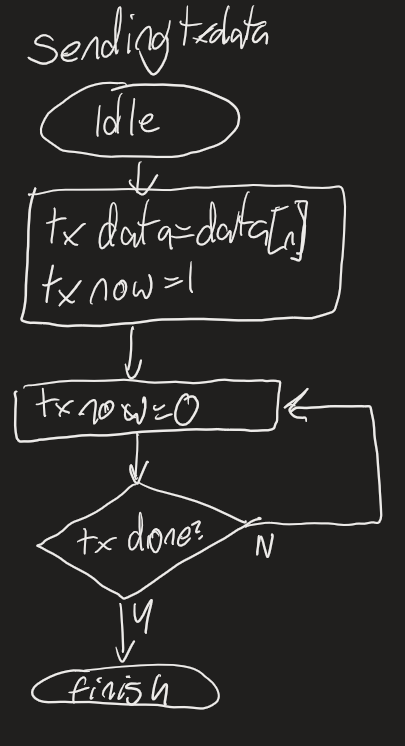 sending txdata
Idle
tx data=data[n]
txnow=1
txnow=0
tx done?
N
Y
finish